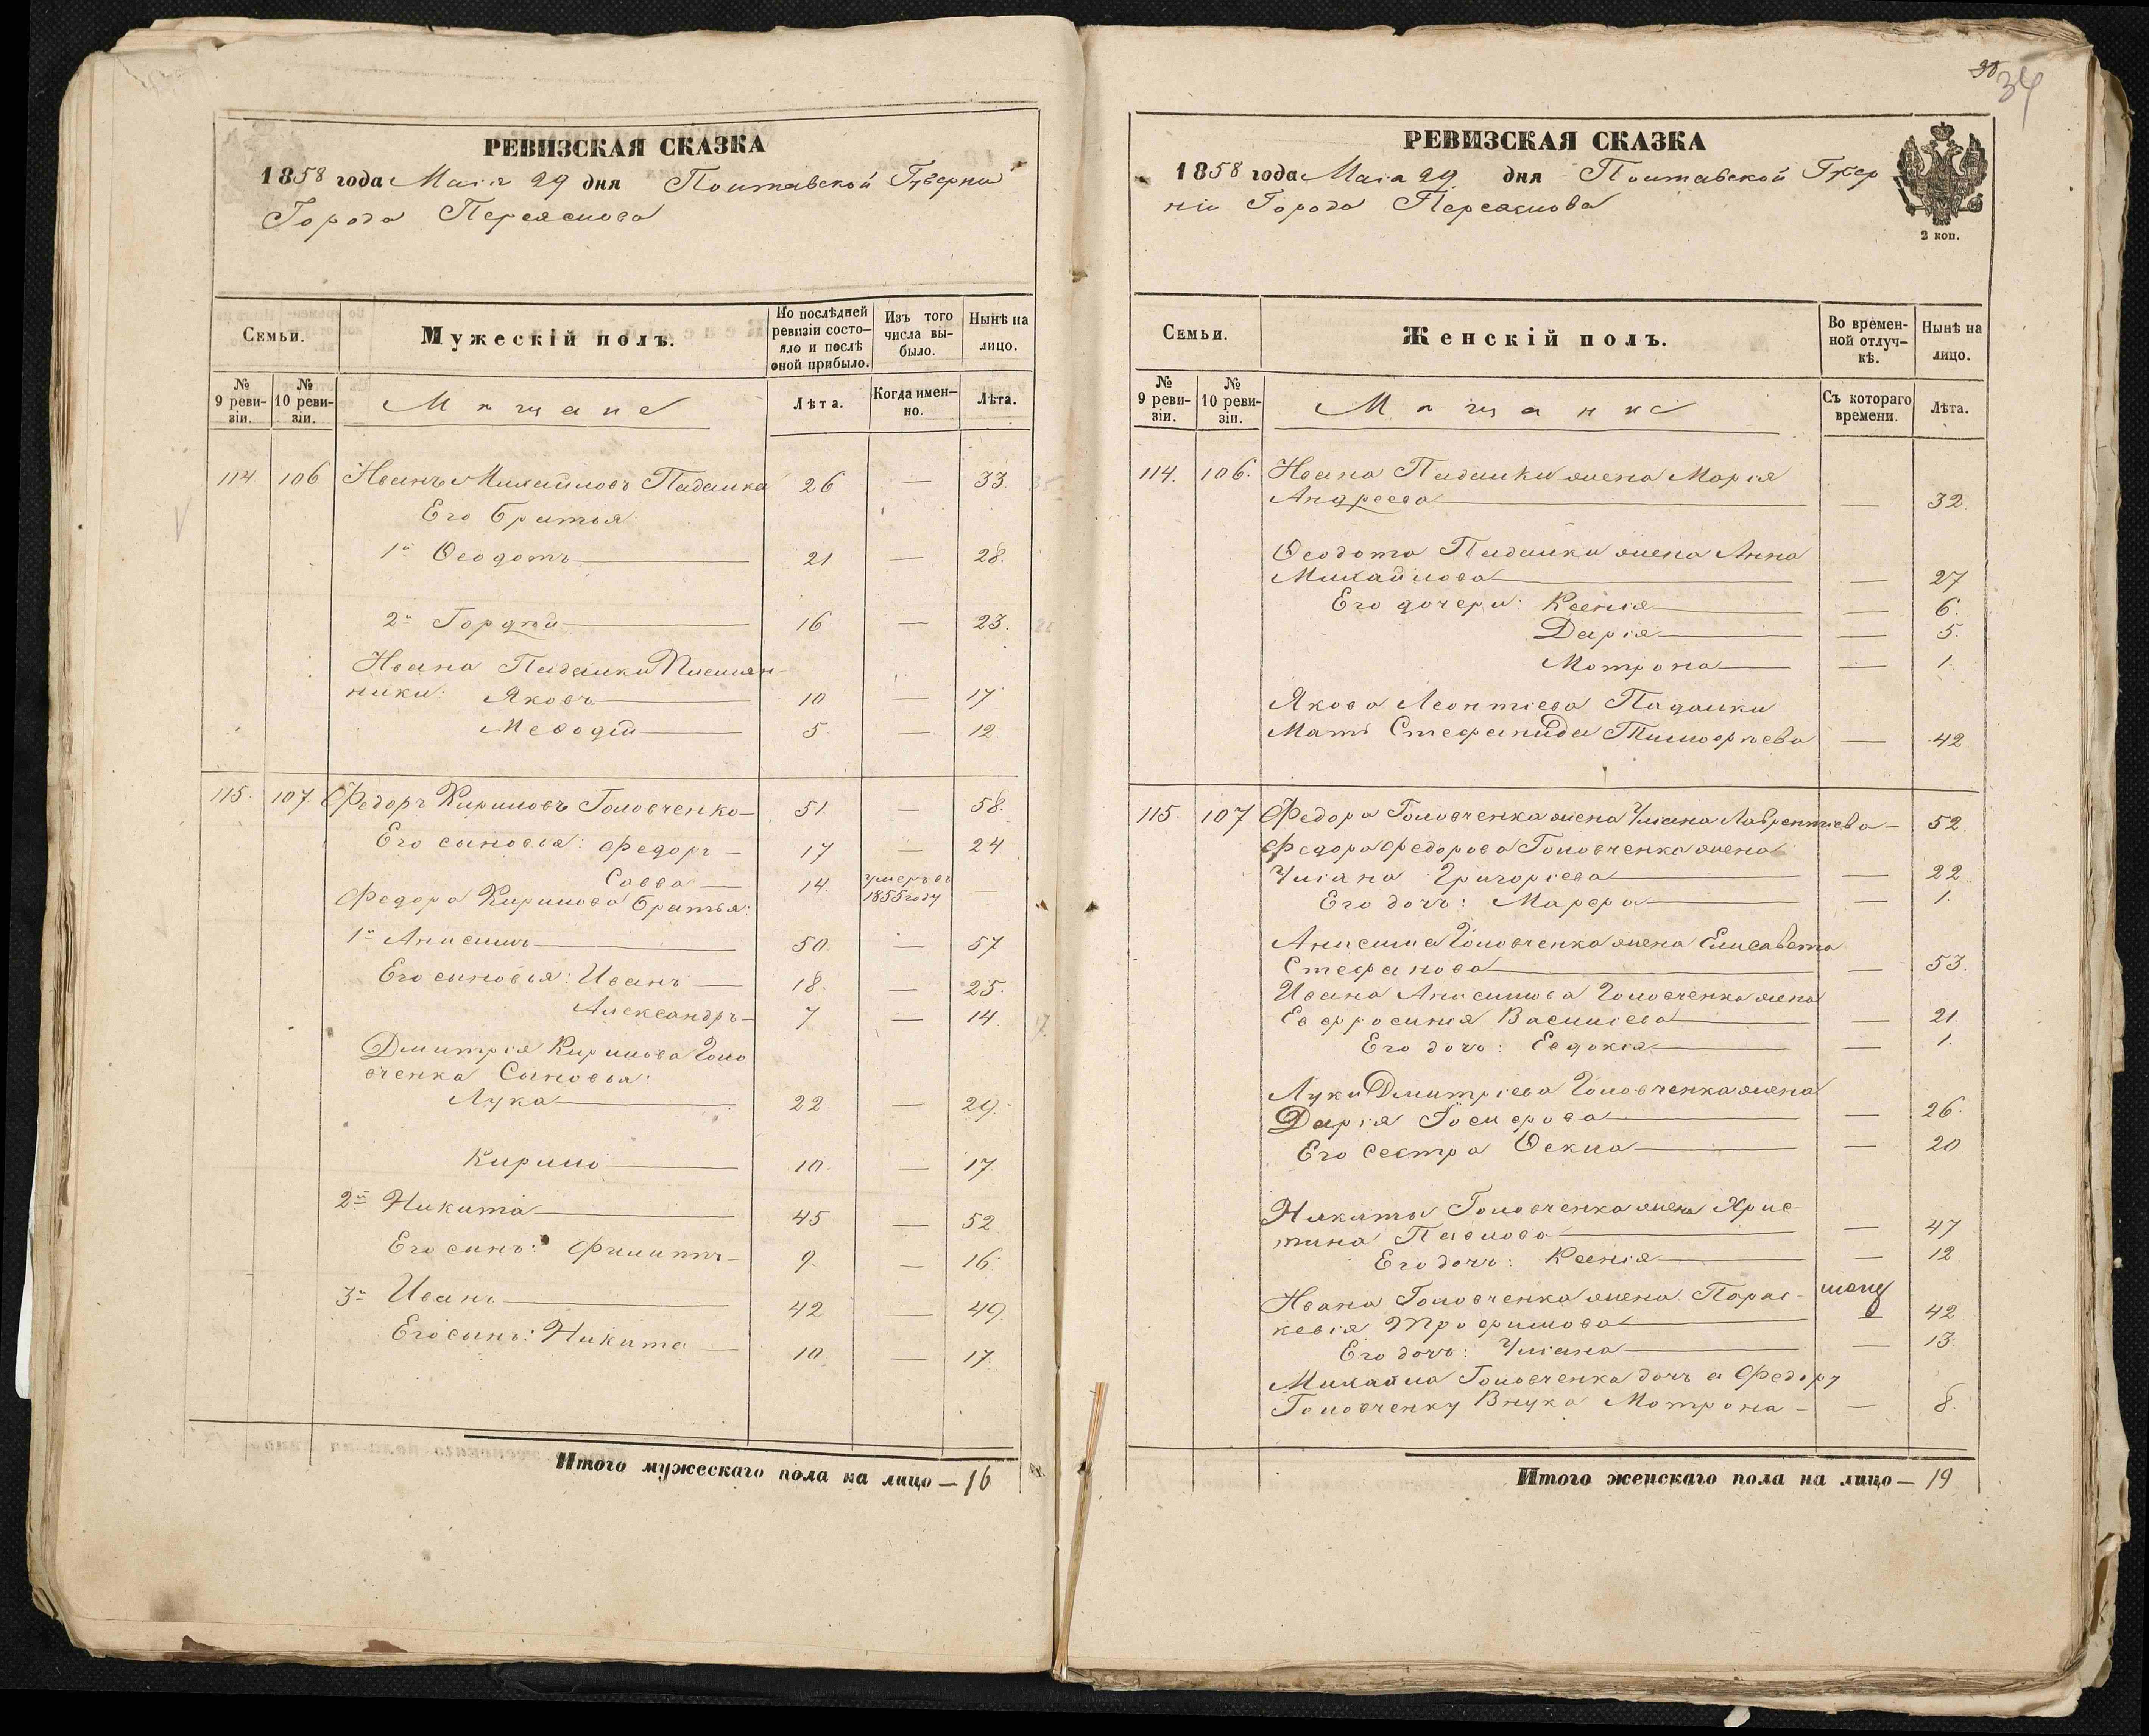 РЕВИЗСКАЯ СКАЗКА
1858 года Маія 29 дня Полтавской Губерніи
Города Переяслова
Семьи.
Мужескій полъ.
По послѣдней ревизіи состояло и послѣ оной прибыло.
Изъ того числа выбыло.
Нынѣ на лицо.
№ 9 ревизіи.
№ 10 ревизіи.
Мѣщане
Лѣта.
Когда именно.
Лѣта.
114 106 Иванъ Михайловъ Падалка 26 — 33
Его братья
1й Ѳеодотъ 21 — 28.
2й Гордѣй 16 — 23.
Ивана Падалки Племян-
ники: Яковъ 10 — 17
Меѳодій 5 — 12.
115. 107. Федоръ Кириловъ Головченко — 51 — 58.
Его сыновья: Федоръ — 17 — 24
Савва — 14. умеръ въ 1855 году —
Федора Кирилова братья:
1й Анисимъ 50 — 57
Его сыновья: Иванъ — 18. — 25.
Александръ — 7 — 14.
Дмитрія Кирилова Голо
вченка Сыновья:
Лука 22 — 29.
Кирило 10. — 17.
2й Никита 45 — 52
Его сынъ: Филиппъ — 9. — 16.
3й Иванъ 42 — 49.
Его сынъ: Никита — 10 — 17.
Итого мужескаго пола на лицо — 16
34
РЕВИЗСКАЯ СКАЗКА
1858 года Маія 29 дня Полтавской Губер
ніи Города Переяслова
2 коп.
Семьи.
Женскій полъ.
Во временной отлучкѣ.
Нынѣ на лицо.
№ 9 ревизіи.
№ 10 ревизіи.
Мѣщанки
Съ котораго времени.
Лѣта.
114. 106. Ивана Падалки жена Марія
Андреева — 32
Ѳеодота Падалки жена Анна
Михайлова — 27
Его дочери: Ксенія — 6.
Дарія — 5.
Мотрона — 1.
Якова Леонтіева Падалки
Мать Стефанида Тимофѣева — 42
115. 107 Федора Головченка жена Уліана Лаврентіева — 52.
Федора Федорова Головченка жена
Уліана Григоріева — 22
Его дочь: Марфа — 1.
Анисима Головченка жена Елисавета
Стефанова — 53.
Ивана Анисимова Головченка жена
Евфросинія Василіева — 21.
Его дочь: Евдокія — 1.
Луки Дмитріева Головченка жена
Дарія Іосифова — 26.
Его сестра Ѳекла — 20
Никиты Головченка жена Хрис-
тина Павлова — 47
Его дочь: Ксенія — 12
Ивана Головченка жена Парас-
кевія Трофимова — 42
Его дочь: Уліана — 13.
Михайла Головченка дочь а Федору
Головченку Внука Мотрона — — 8.
Итого женскаго пола на лицо — 19